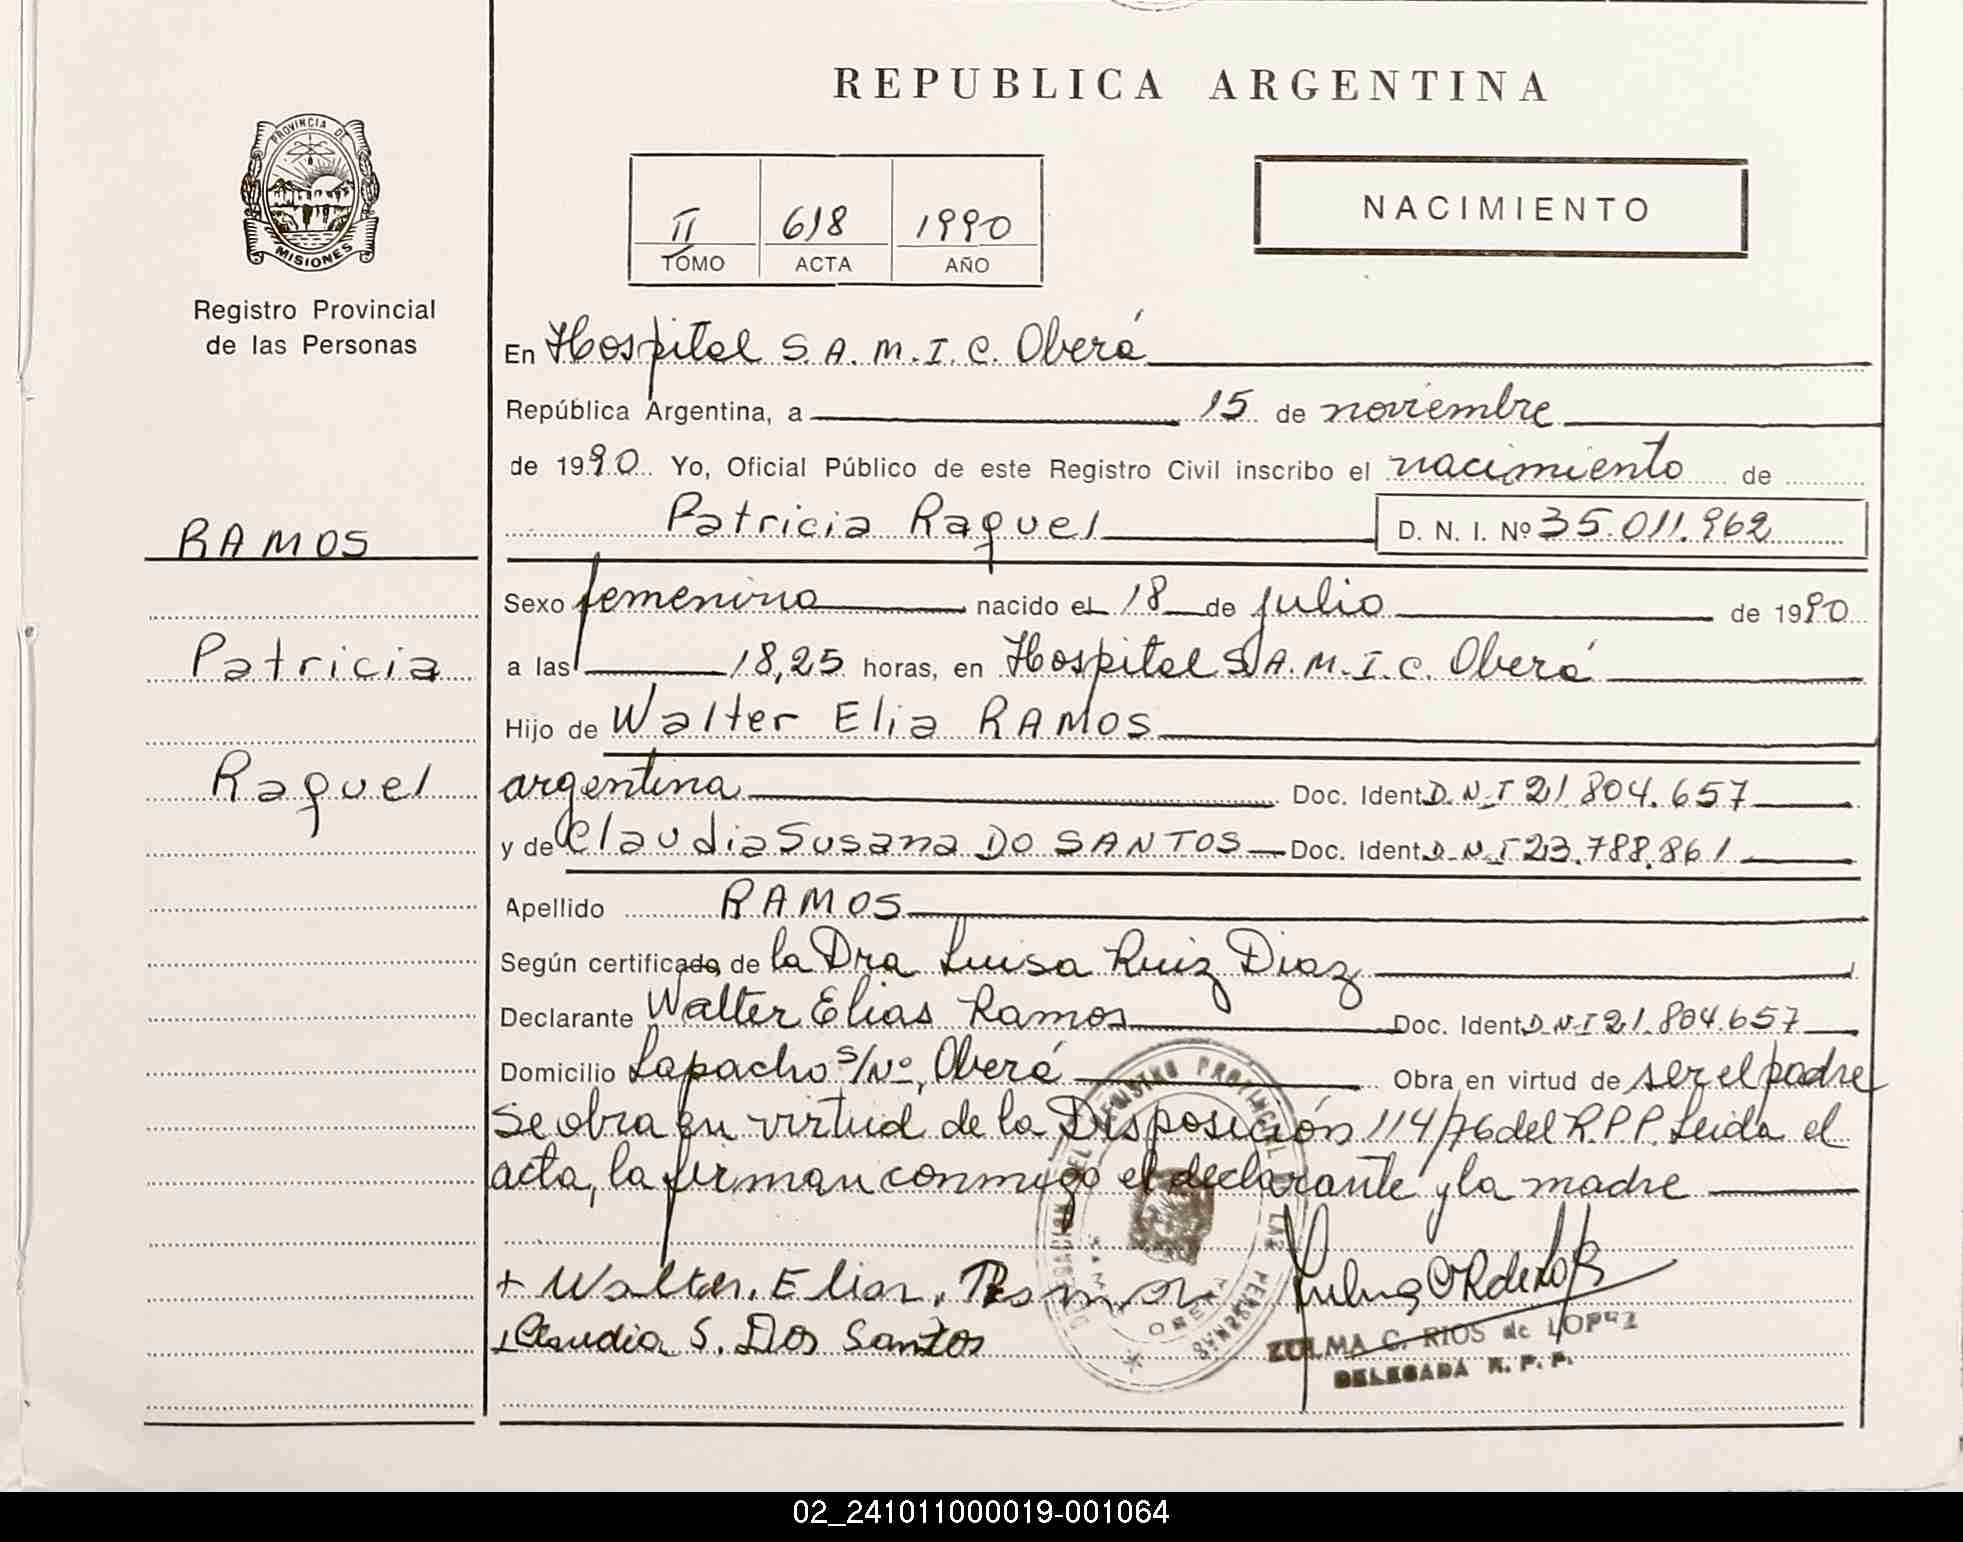 REPUBLICA ARGENTINA
PROVINCIA DE
MISIONES
Registro Provincial
de las Personas
II 618 1990
TOMO ACTA AÑO
NACIMIENTO
En Hospital S.A.M.I.C. Oberá
República Argentina, a 15 de noviembre
de 1990 Yo, Oficial Público de este Registro Civil inscribo el nacimiento de
Patricia Raquel D. N. I. Nº 35.011.962
RAMOS
Patricia
Raquel
Sexo femenino nacido el 18 de julio de 1990
a las 18,25 horas, en Hospital S.A.M.I.C. Oberá
Hijo de Walter Elia RAMOS
argentina Doc. Ident. D.N.I 21.804.657
y de Claudia Susana DO SANTOS Doc. Ident. D.N.I 23.788.861
Apellido RAMOS
Según certificado de la Dra Luisa Ruiz Diaz
Declarante Walter Elias Ramos Doc. Ident. D.N.I 21.804.657
Domicilio Lapacho s/Nº, Oberá Obra en virtud de ser el padre
Se obra en virtud de la Disposición 114/76 del R.P.P. Leida el
acta, la firman conmigo el declarante y la madre
+ Walter. Elias. Ramos
Claudia S. Dos Santos
DELEGACION DEL REGISTRO PROVINCIAL DE LAS PERSONAS
OBERA
ZULMA C. RIOS de LOPEZ
DELEGADA R. P. P.
02_241011000019-001064